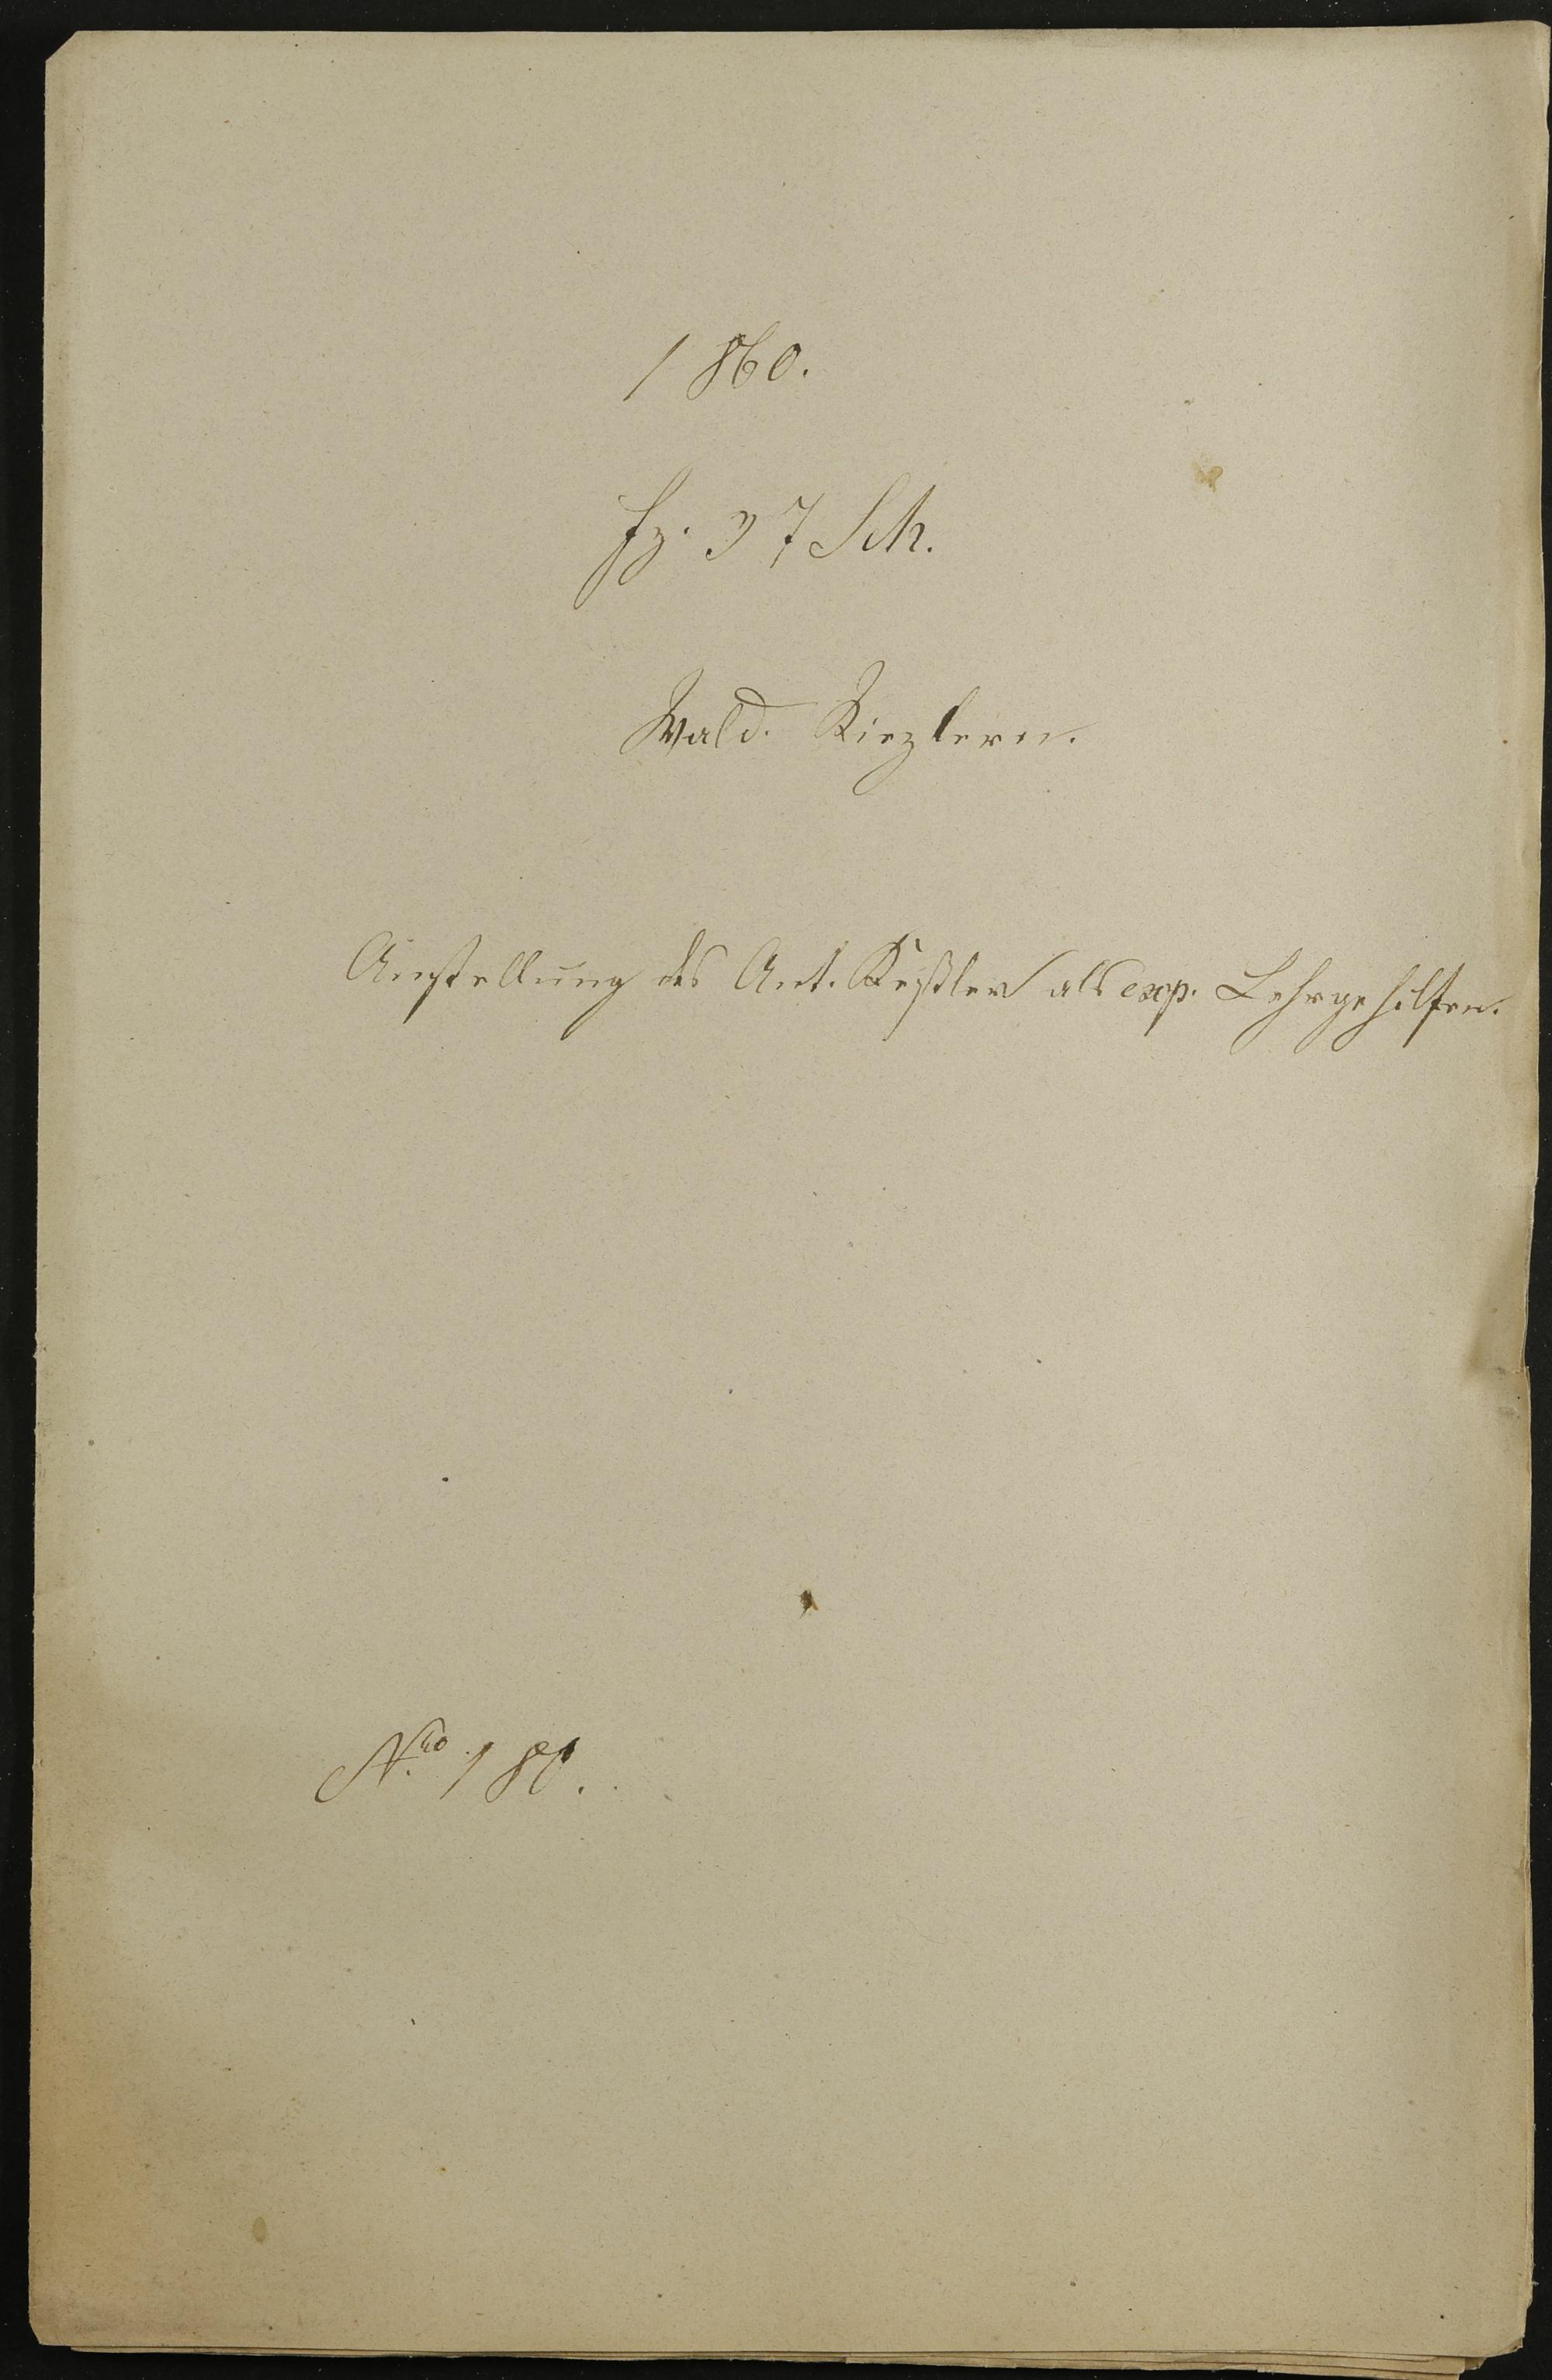 1860.
fz. 37 Sch.
Wald. Riezlern.
Anstellung des Ant. Keßler als exp. Lehrgehilfen.
Nro 180.